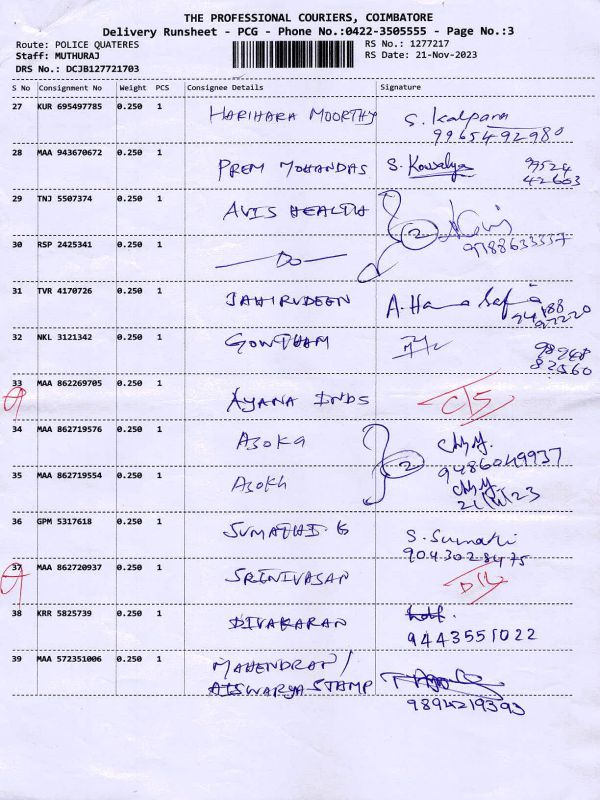 THE PROFESSIONAL COURIERS, COIMBATORE
Delivery Runsheet - PCG - Phone No.:0422-3505555 - Page No.:3
Route: POLICE QUATERES
RS No.: 1277217
Staff: MUTHURAJ
RS Date: 21-Nov-2023
DRS No.: DCJB127721703
S No Consignment No Weight PCS Consignee Details Signature
27 KUR 695497785 0.250 1 HARIHARA MOORTHY S. Kalpana
9965492980
28 MAA 943670672 0.250 1 PREM MOHANDAS S. Kowalya 99524
42603
29 TNJ 5507374 0.250 1 AVIS HEALTH
2
30 RSP 2425341 0.250 1 —Do— 9788633337
31 TVR 4170726 0.250 1 JAHIRUDEEN A. Hama Safia
32 NKL 3121342 0.250 1 GOWTHAM 98948
82560
33 MAA 862269705 0.250 1 AYANA INDS C/S
34 MAA 862719576 0.250 1 ASOKA
2 9486049937
35 MAA 862719554 0.250 1 ASOKA
21/11/23
36 GPM 5317618 0.250 1 SUMATHI. G S. Sumathi
9043028475
37 MAA 862720937 0.250 1 SRINIVASAN D/L
38 KRR 5825739 0.250 1 DIVAKARAN
9443551022
39 MAA 572351006 0.250 1 MAHENDRAN/
AISWARYA STAMP
9894219393